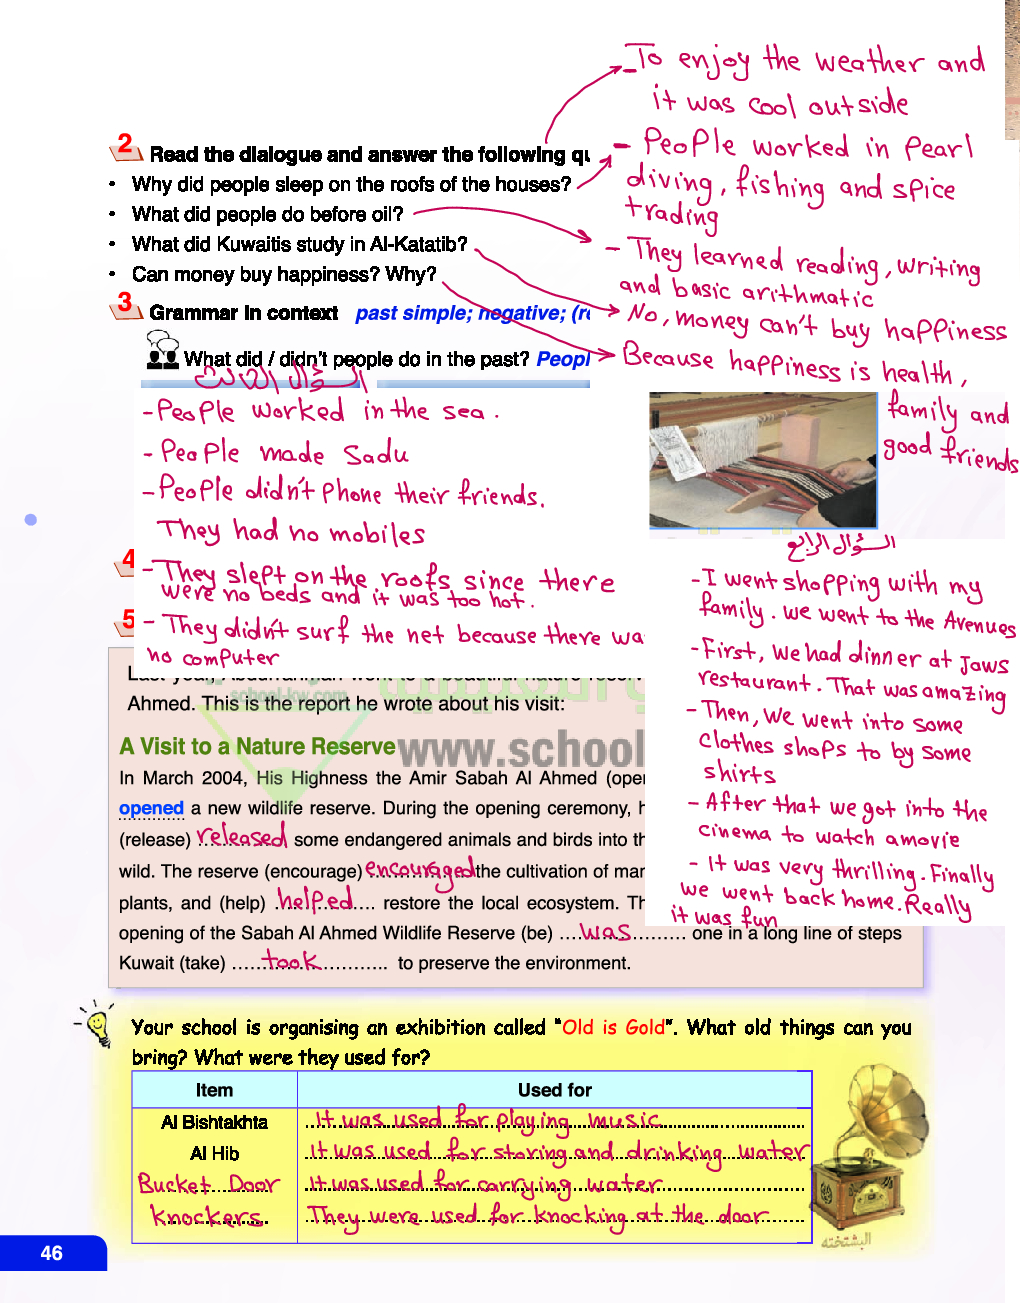 -To enjoy the weather and
it was cool outside
2 Read the dialogue and answer the following qu
• Why did people sleep on the roofs of the houses?
- People worked in Pearl
diving, fishing and spice
trading
• What did people do before oil?
• What did Kuwaitis study in Al-Katatib?
- They learned reading, writing
and basic arithmatic
• Can money buy happiness? Why?
- No, money can't buy happiness
Because happiness is health,
family and
good friends
3 Grammar in context past simple; negative; (re
What did / didn't people do in the past? Peopl
السؤال الثالث
-People worked in the sea.
- People made Sadu
-People didn't Phone their friends.
They had no mobiles
4
-They slept on the roofs since there
were no beds and it was too hot.
5
- They didn't surf the net because there wa
no computer
السؤال الرابع
-I went shopping with my
family. we went to the Avenues
-First, we had dinner at Jaws
restaurant. That was amazing
- Then, we went into some
clothes shops to by some
shirts
- After that we got into the
cinema to watch a movie
- It was very thrilling. Finally
we went back home. Really
it was fun
school-kw.com
Ahmed. This is the report he wrote about his visit:
A Visit to a Nature Reserve
www.school
In March 2004, His Highness the Amir Sabah Al Ahmed (oper
opened a new wildlife reserve. During the opening ceremony, h
(release) released some endangered animals and birds into th
wild. The reserve (encourage) encouraged the cultivation of mar
plants, and (help) helped restore the local ecosystem. Th
opening of the Sabah Al Ahmed Wildlife Reserve (be) was one in a long line of steps
Kuwait (take) took to preserve the environment.
Your school is organising an exhibition called "Old is Gold". What old things can you
bring? What were they used for?
Item Used for
Al Bishtakhta It was used for playing music
Al Hib It was used for storing and drinking water
Bucket Door It was used for carrying water
Knockers They were used for knocking at the door
البشتخته
46